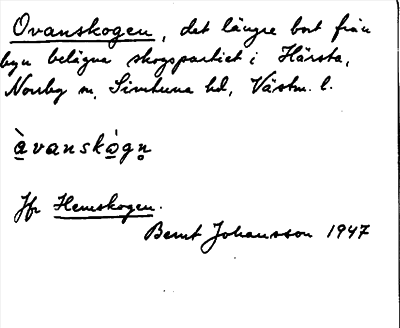 Ovanskogen, det längre bort från
byn belägna skogspartiet i Härsta,
Norrby sn, Simtuna hd, Västm. l.
å̀vanskò̱gn̥
Jfr Hemskogen.
Bernt Johansson 1947